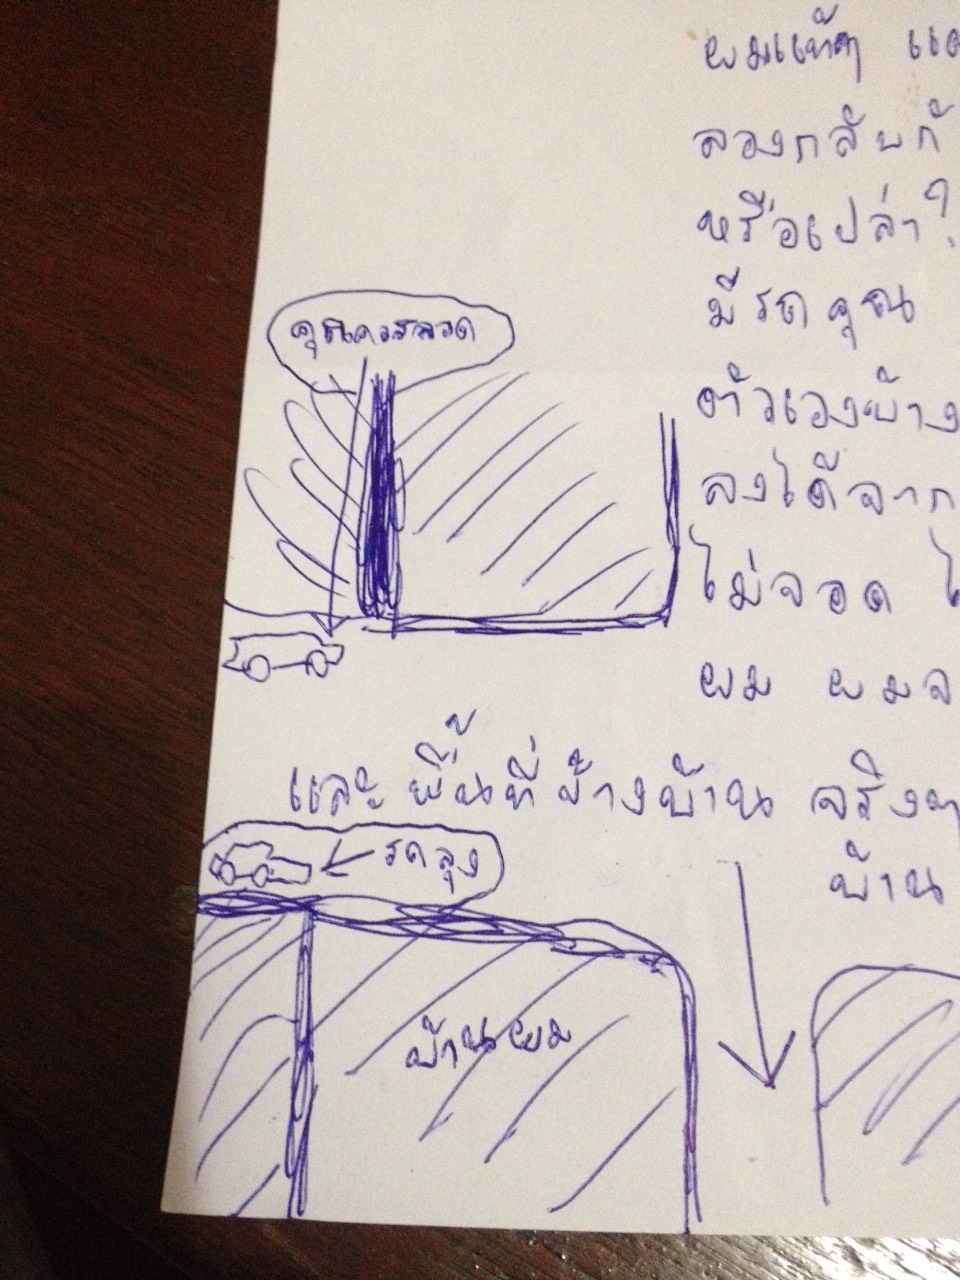 ผมแท้ๆ
ลองกลับก
หรือเปล่า?
มีรถคุณ
คุณควรจอด
ตัวเองบ้าง
ลงได้จาก
ไม่จอด
ผม ผมจ
และ พื้นที่ข้างบ้าน จริงๆ
บ้าน
รถลุง
บ้านผม